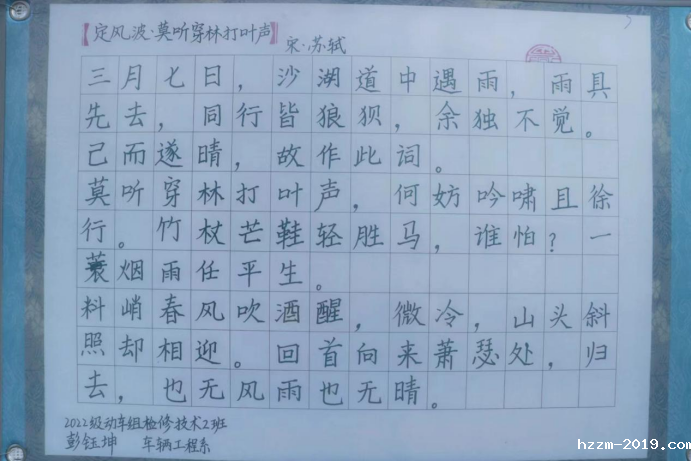 【定风波·莫听穿林打叶声】
宋·苏轼
三月七日，沙湖道中遇雨，雨具
先去，同行皆狼狈，余独不觉。
己而遂晴，故作此词。
莫听穿林打叶声，何妨吟啸且徐
行。竹杖芒鞋轻胜马，谁怕？一
蓑烟雨任平生。
料峭春风吹酒醒，微冷，山头斜
照却相迎。回首向来萧瑟处，归
去，也无风雨也无晴。
2022级动车组检修技术2班
彭钰坤 车辆工程系
hzzm-2019.com